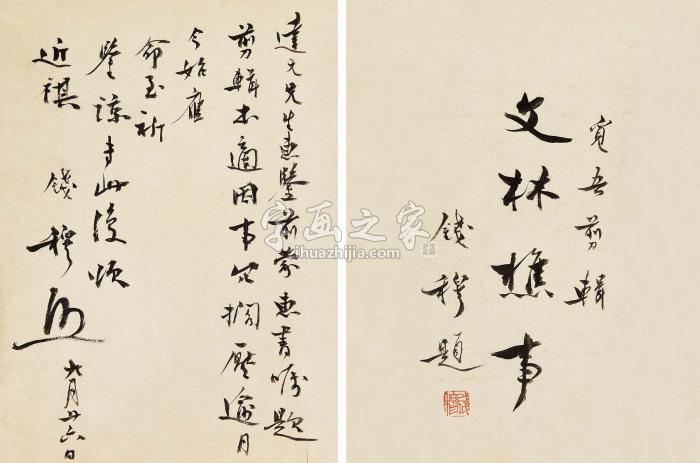 達元兄生惠鑒前蒙惠書囑題
剪輯本適因事冗擱壓逾月
今始應
命至祈
鑒諒專此復頌
近祺
錢穆
九月廿六日
覓吾剪輯
文林樵事
錢穆題
字画之家
zihuazhijia.com